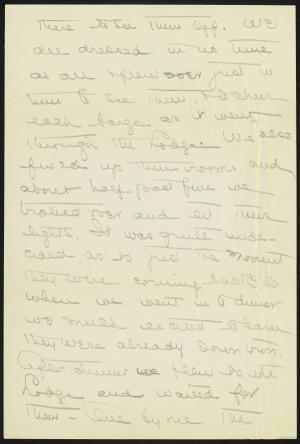 there to see them off. We
all dressed in no time
as all & flew over just in
time to see them, & cheer
each barge as it went
through the Lodge. We also
fixed up their rooms, and
about half-past five we
trailed over and lit their
lights. It was quite unde-
cided as to just the moment
they were coming back, so
when we went in to dinner
we were excited to learn
they were already down town.
After dinner we flew to the
Lodge and waited for
them - One by one the